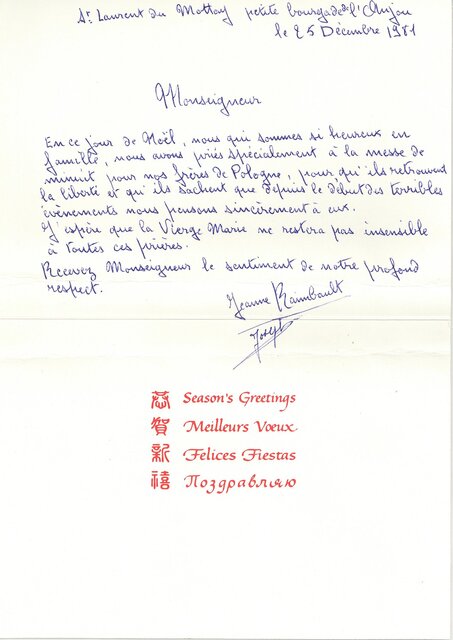 St Laurent du Mottay petite bourgade de l'Anjou
le 25 Décembre 1981
Monseigneur
En ce jour de Noël, nous qui sommes si heureux en
famille, nous avons priés spécialement à la messe de
minuit pour nos frères de Pologne, pour qu'ils retrouvent
la liberté et qu'ils sachent que depuis le début des terribles
évènements nous pensons sincèrement à eux.
J'espère que la Vierge Marie ne restera pas insensible
à toutes ces prières.
Recevez Monseigneur le sentiment de notre profond
respect.
Jeanne Raimbault
Joseph
恭 Season's Greetings
賀 Meilleurs Vœux
新 Felices Fiestas
禧 Поздравляю